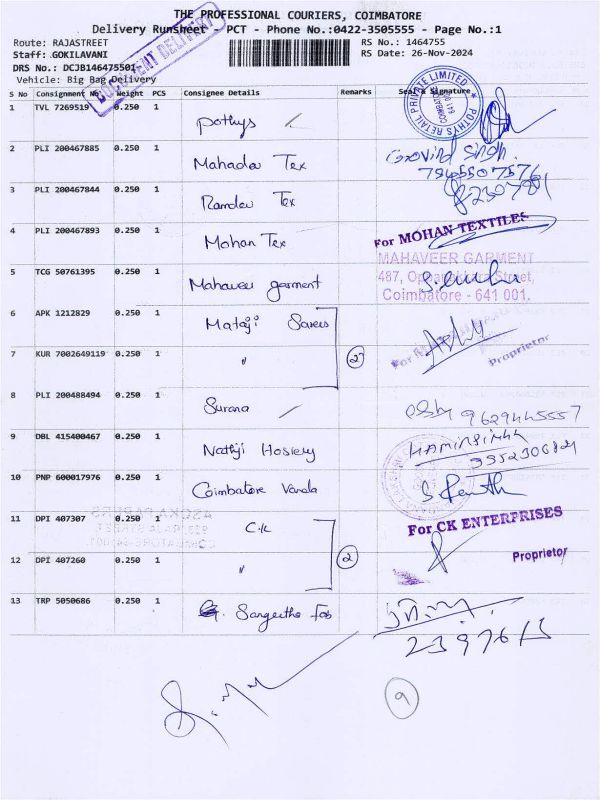 THE PROFESSIONAL COURIERS, COIMBATORE
Delivery Runsheet - PCT - Phone No.:0422-3505555 - Page No.:1
Route: RAJASTREET RS No.: 1464755
Staff: GOKILAVANI RS Date: 26-Nov-2024
DRS No.: DCJB146475501
Vehicle: Big Bag Delivery
DOCUMENT DELIVERY
S No Consignment No. Weight PCS Consignee Details Remarks Seal & Signature
1 TVL 7269519 0.250 1 Pothys
POTHYS RETAIL PRIVATE LIMITED
COIMBATORE
2 PLI 200467885 0.250 1 Mahadev Tex Govind Singh
3 PLI 200467844 0.250 1 Ramdev Tex
4 PLI 200467893 0.250 1 Mohan Tex For MOHAN TEXTILES
5 TCG 50761395 0.250 1 Mahaveer garment
MAHAVEER GARMENT
487, Oppanakkara Street,
Coimbatore - 641 001.
6 APK 1212829 0.250 1 Mataji Sarees
7 KUR 7002649119 0.250 1 〃 2 Proprietor
8 PLI 200488494 0.250 1 Surana 9629445557
9 DBL 415400467 0.250 1 Nathji Hosiery
10 PNP 600017976 0.250 1 Coimbatore Vanda
ASOKA PAPERS
11 DPI 407307 0.250 1 C.K For CK ENTERPRISES
12 DPI 407260 0.250 1 〃 2 Proprietor
13 TRP 5050686 0.250 1 Sangeetha Fab
9